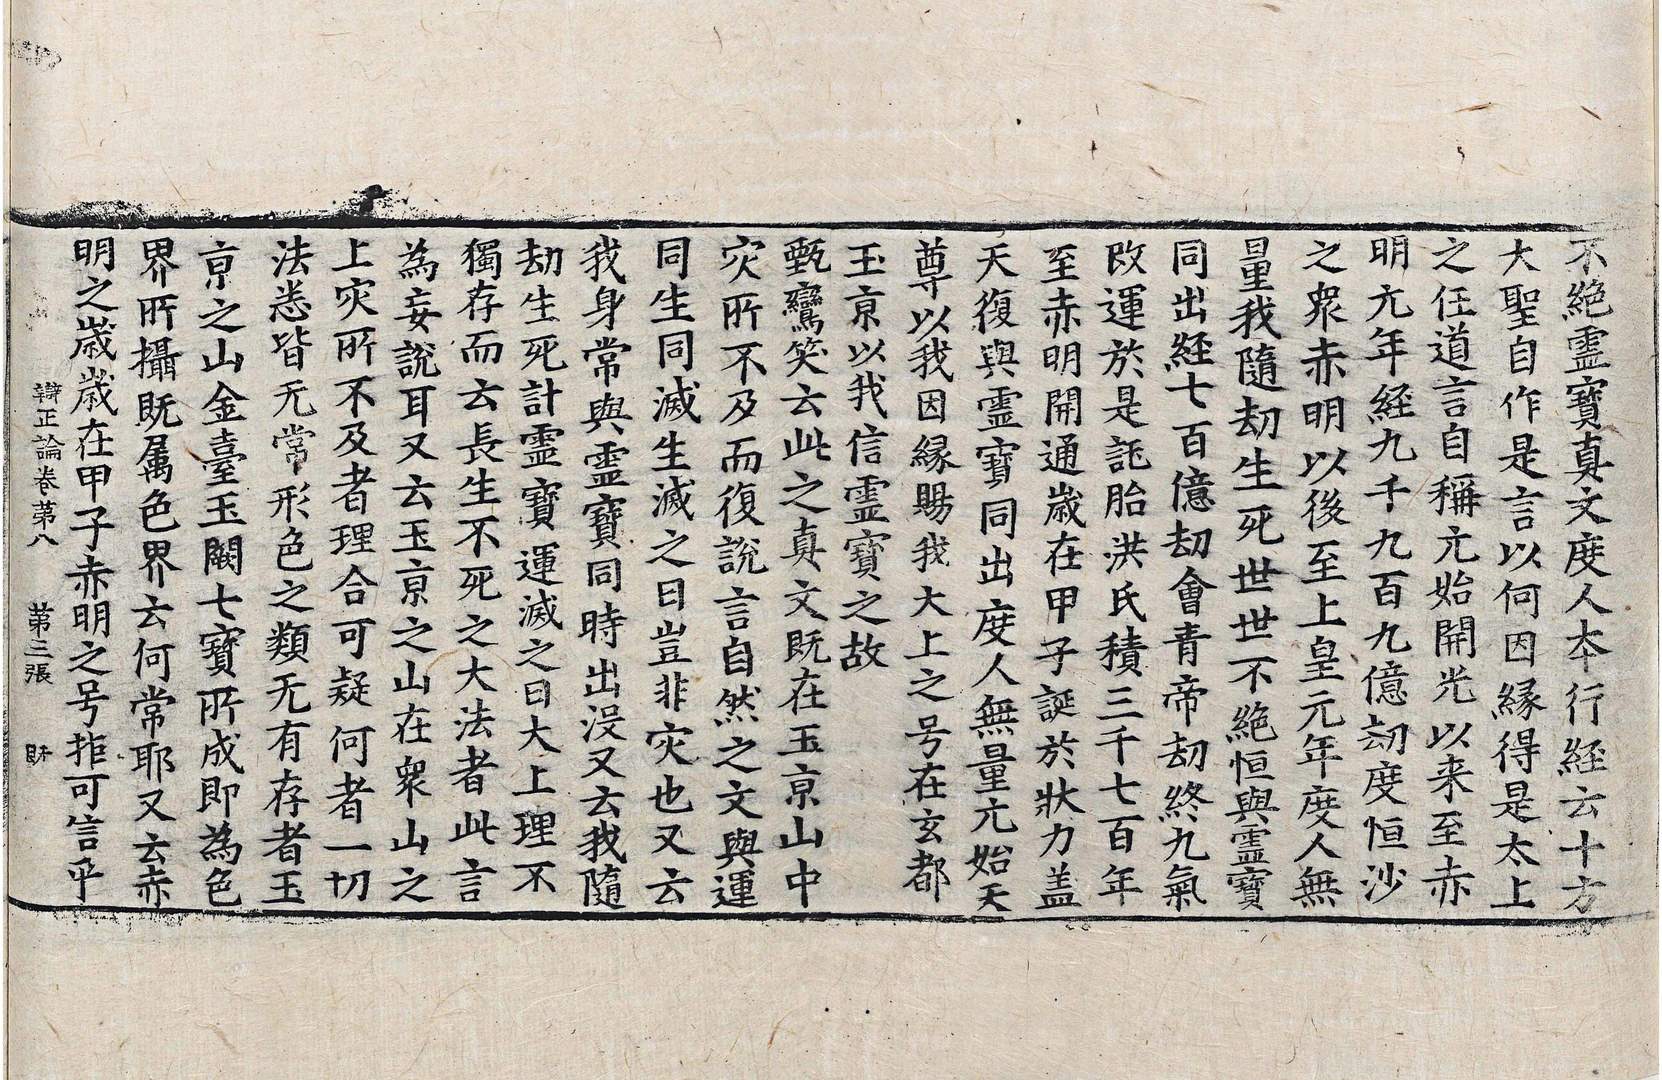 不絶霊寶真文度人夲行経云十方
大聖自作是言以何因縁得是太上
之任道言自稱元始開光以来至赤
明元年経九千九百九億劫度恒沙
之衆赤明以後至上皇元年度人無
量我隨劫生死世世不絶恒與霊寶
同出経七百億劫會青帝劫終九氣
改運於是託胎洪氏積三千七百年
至赤明開通歳在甲子誕於狀力盖
天復與霊寶同出度人無量元始天
尊以我因縁賜我大上之号在玄都
玉亰以我信霊寶之故
甄鸞笑云此之真文既在玉亰山中
灾所不及而復說言自然之文與運
同生同滅生滅之日豈非灾也又云
我身常與霊寶同時出没又云我隨
劫生死計霊寶運滅之日大上理不
獨存而云長生不死之大法者此言
為妄說耳又云玉亰之山在衆山之
上灾所不及者理合可疑何者一切
法悉皆无常形色之類无有存者玉
亰之山金臺玉闕七寶所成即為色
界所攝既属色界云何常耶又云赤
明之歳歳在甲子赤明之号拒可言乎
辯正論卷第八 第三張